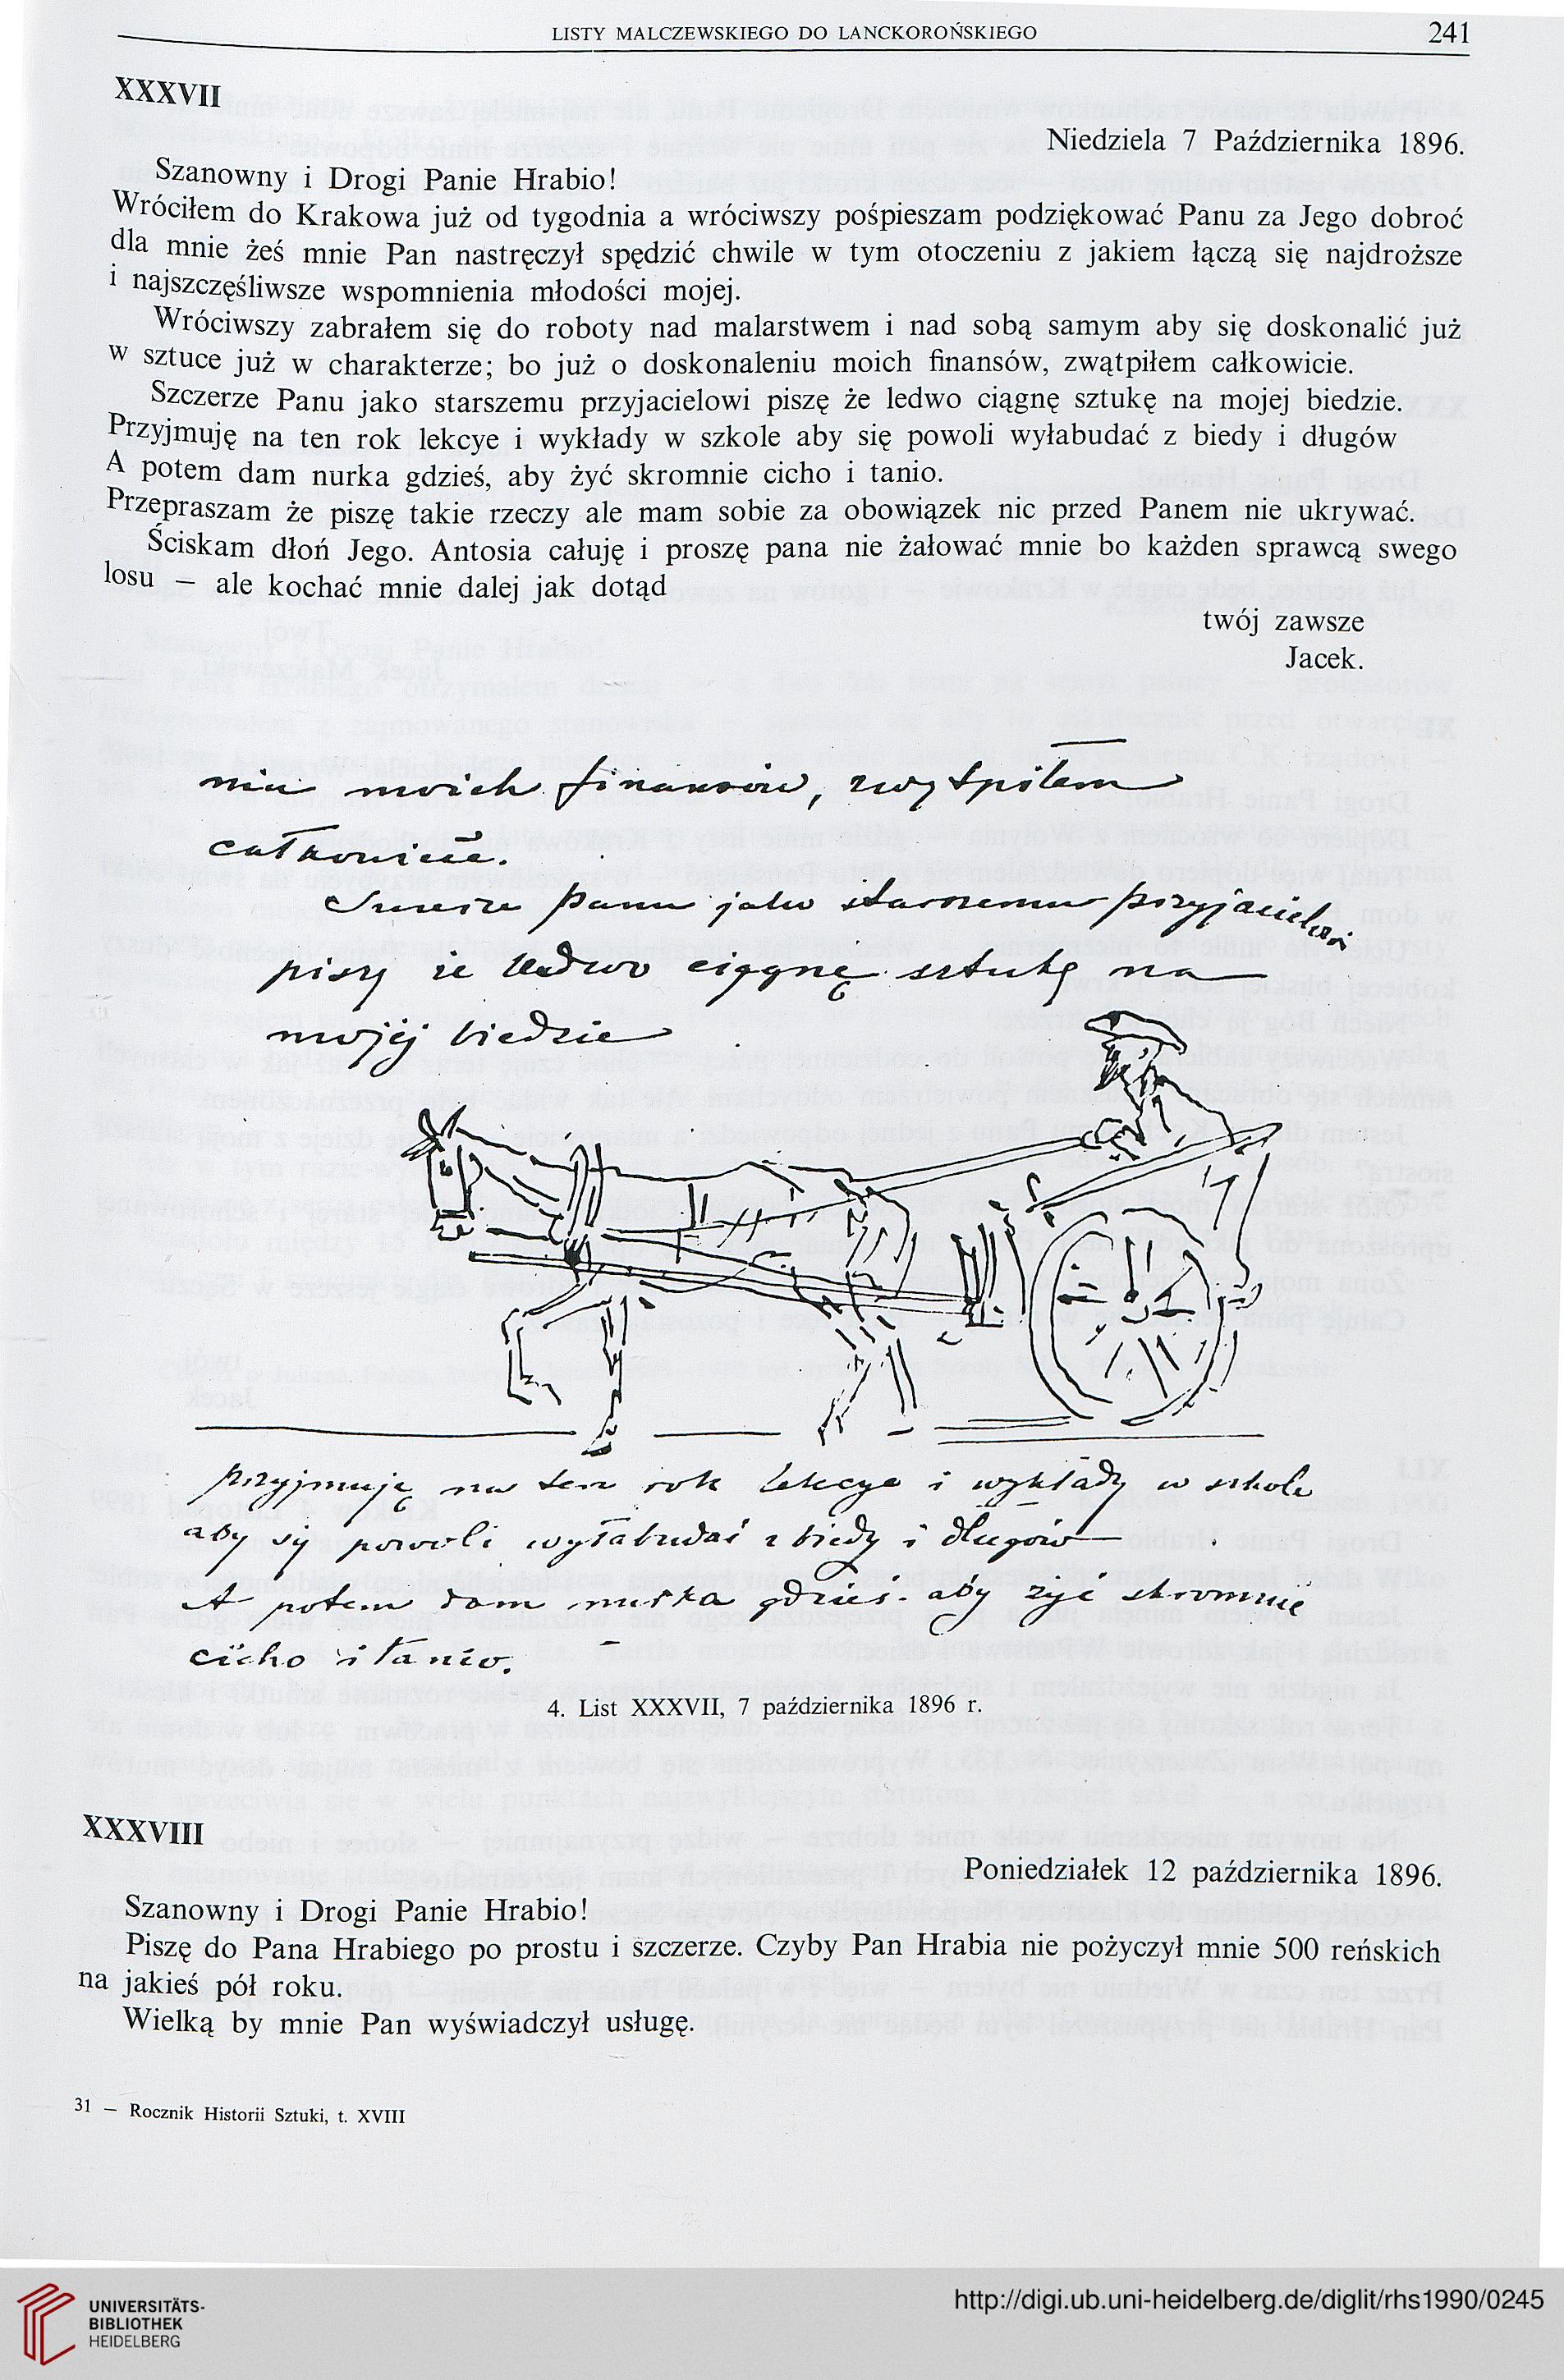 LISTY MALCZEWSKIEGO DO LANCKOROŃSKIEGO 241
XXXVII
Niedziela 7 Października 1896.
Szanowny i Drogi Panie Hrabio!
Wróciłem do Krakowa już od tygodnia a wróciwszy pośpieszam podziękować Panu za Jego dobroć
dla mnie żeś mnie Pan nastręczył spędzić chwile w tym otoczeniu z jakiem łączą się najdroższe
i najszczęśliwsze wspomnienia młodości mojej.
Wróciwszy zabrałem się do roboty nad malarstwem i nad sobą samym aby się doskonalić już
w sztuce już w charakterze; bo już o doskonaleniu moich finansów, zwątpiłem całkowicie.
Szczerze Panu jako starszemu przyjacielowi piszę że ledwo ciągnę sztukę na mojej biedzie.
Przyjmuję na ten rok lekcye i wykłady w szkole aby się powoli wyłabudać z biedy i długów
A potem dam nurka gdzieś, aby żyć skromnie cicho i tanio.
Przepraszam że piszę takie rzeczy ale mam sobie za obowiązek nic przed Panem nie ukrywać.
Ściskam dłoń Jego. Antosia całuję i proszę pana nie żałować mnie bo każden sprawcą swego
losu — ale kochać mnie dalej jak dotąd
twój zawsze
Jacek.
niu moich finansów, zwątpiłem
całkowicie.
Szczerze Panu jako starszemu przyjacielowi
piszę że ledwo ciągnę sztukę na
mojej biedzie
przyjmuję na ten rok lekcye i wykłady w szkole
aby się powoli wyłabudać z biedy i długów
A potem dam nurka gdzieś. aby żyć skromnie
cicho i tanio.
4. List XXXVII, 7 października 1896 r.
XXXVIII
Poniedziałek 12 października 1896.
Szanowny i Drogi Panie Hrabio!
Piszę do Pana Hrabiego po prostu i szczerze. Czyby Pan Hrabia nie pożyczył mnie 500 reńskich
na jakieś pół roku.
Wielką by mnie Pan wyświadczył usługę.
31 — Rocznik Historii Sztuki, t. XVIII
UNIVERSITÄTS-
BIBLIOTHEK
HEIDELBERG
http://digi.ub.uni-heidelberg.de/diglit/rhs1990/0245